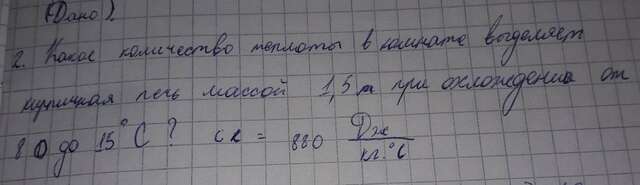 (Дано).
2. Какое количество теплоты в комнате выделяет
кирпичная печь массой 1,5т при охлаждении от
80 до 15°C? cк = 880 Дж/кг·°C